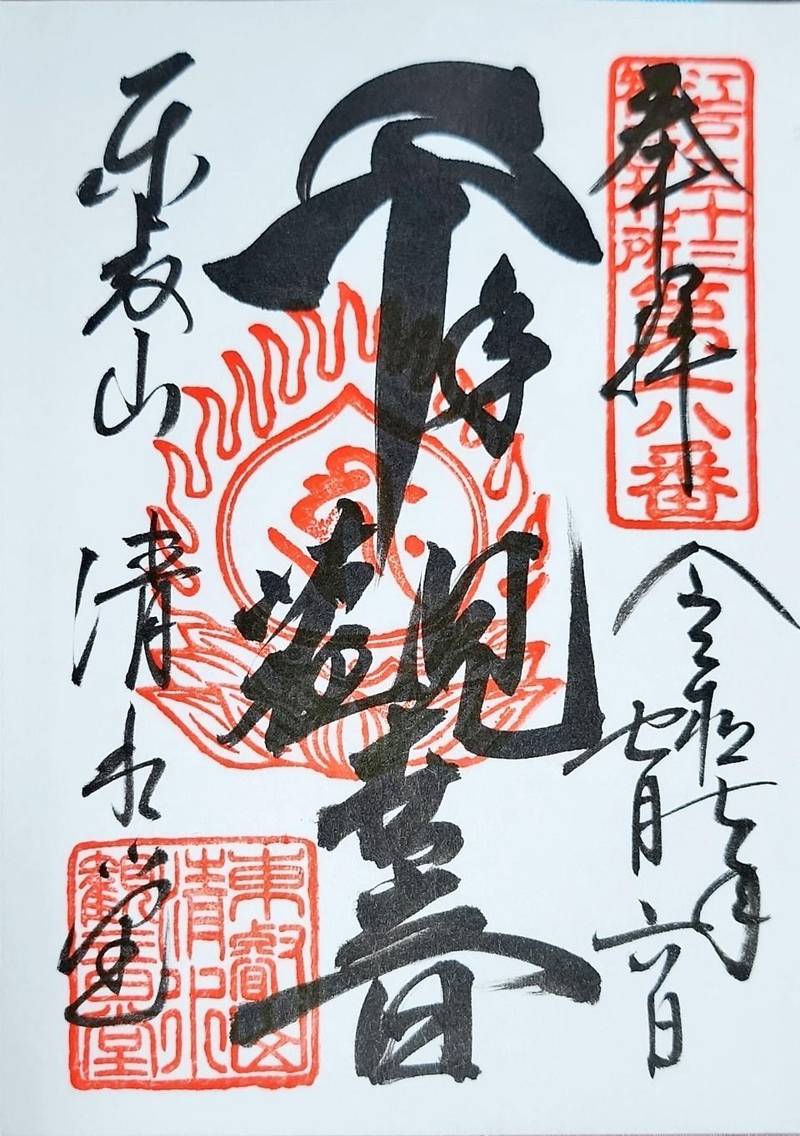 江戸三十三
観音札所
第六番
奉拝
令和七年
七月六日
千手觀世音
東叡山 清水堂
東叡山
清水
觀音堂